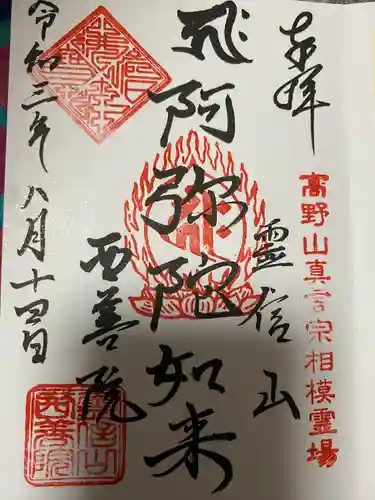 奉拝
高野山真言宗相模霊場
霊信山
飛阿弥陀如来
西善院
令和三年八月十四日
西善院